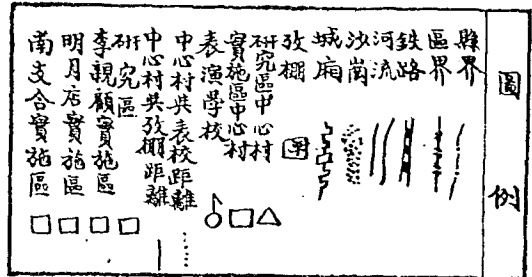 圖例
縣界
區界
鉄路
河流
沙崗
城廂
攷棚
研究區中心村
實施區中心村
表演學校
中心村共表校距離
中心村共攷棚距離
研究區
李親顧實施區
明月店實施區
南支合實施區